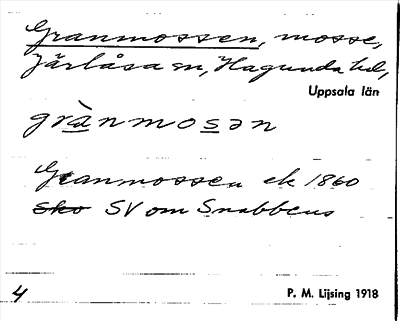 Granmossen, mosse,
Järlåsa sn, Hagunda hd,
Uppsala län
grànmosən
Granmossen ek 1860
sko SV om Snabbens
4 P. M. Lijsing 1918